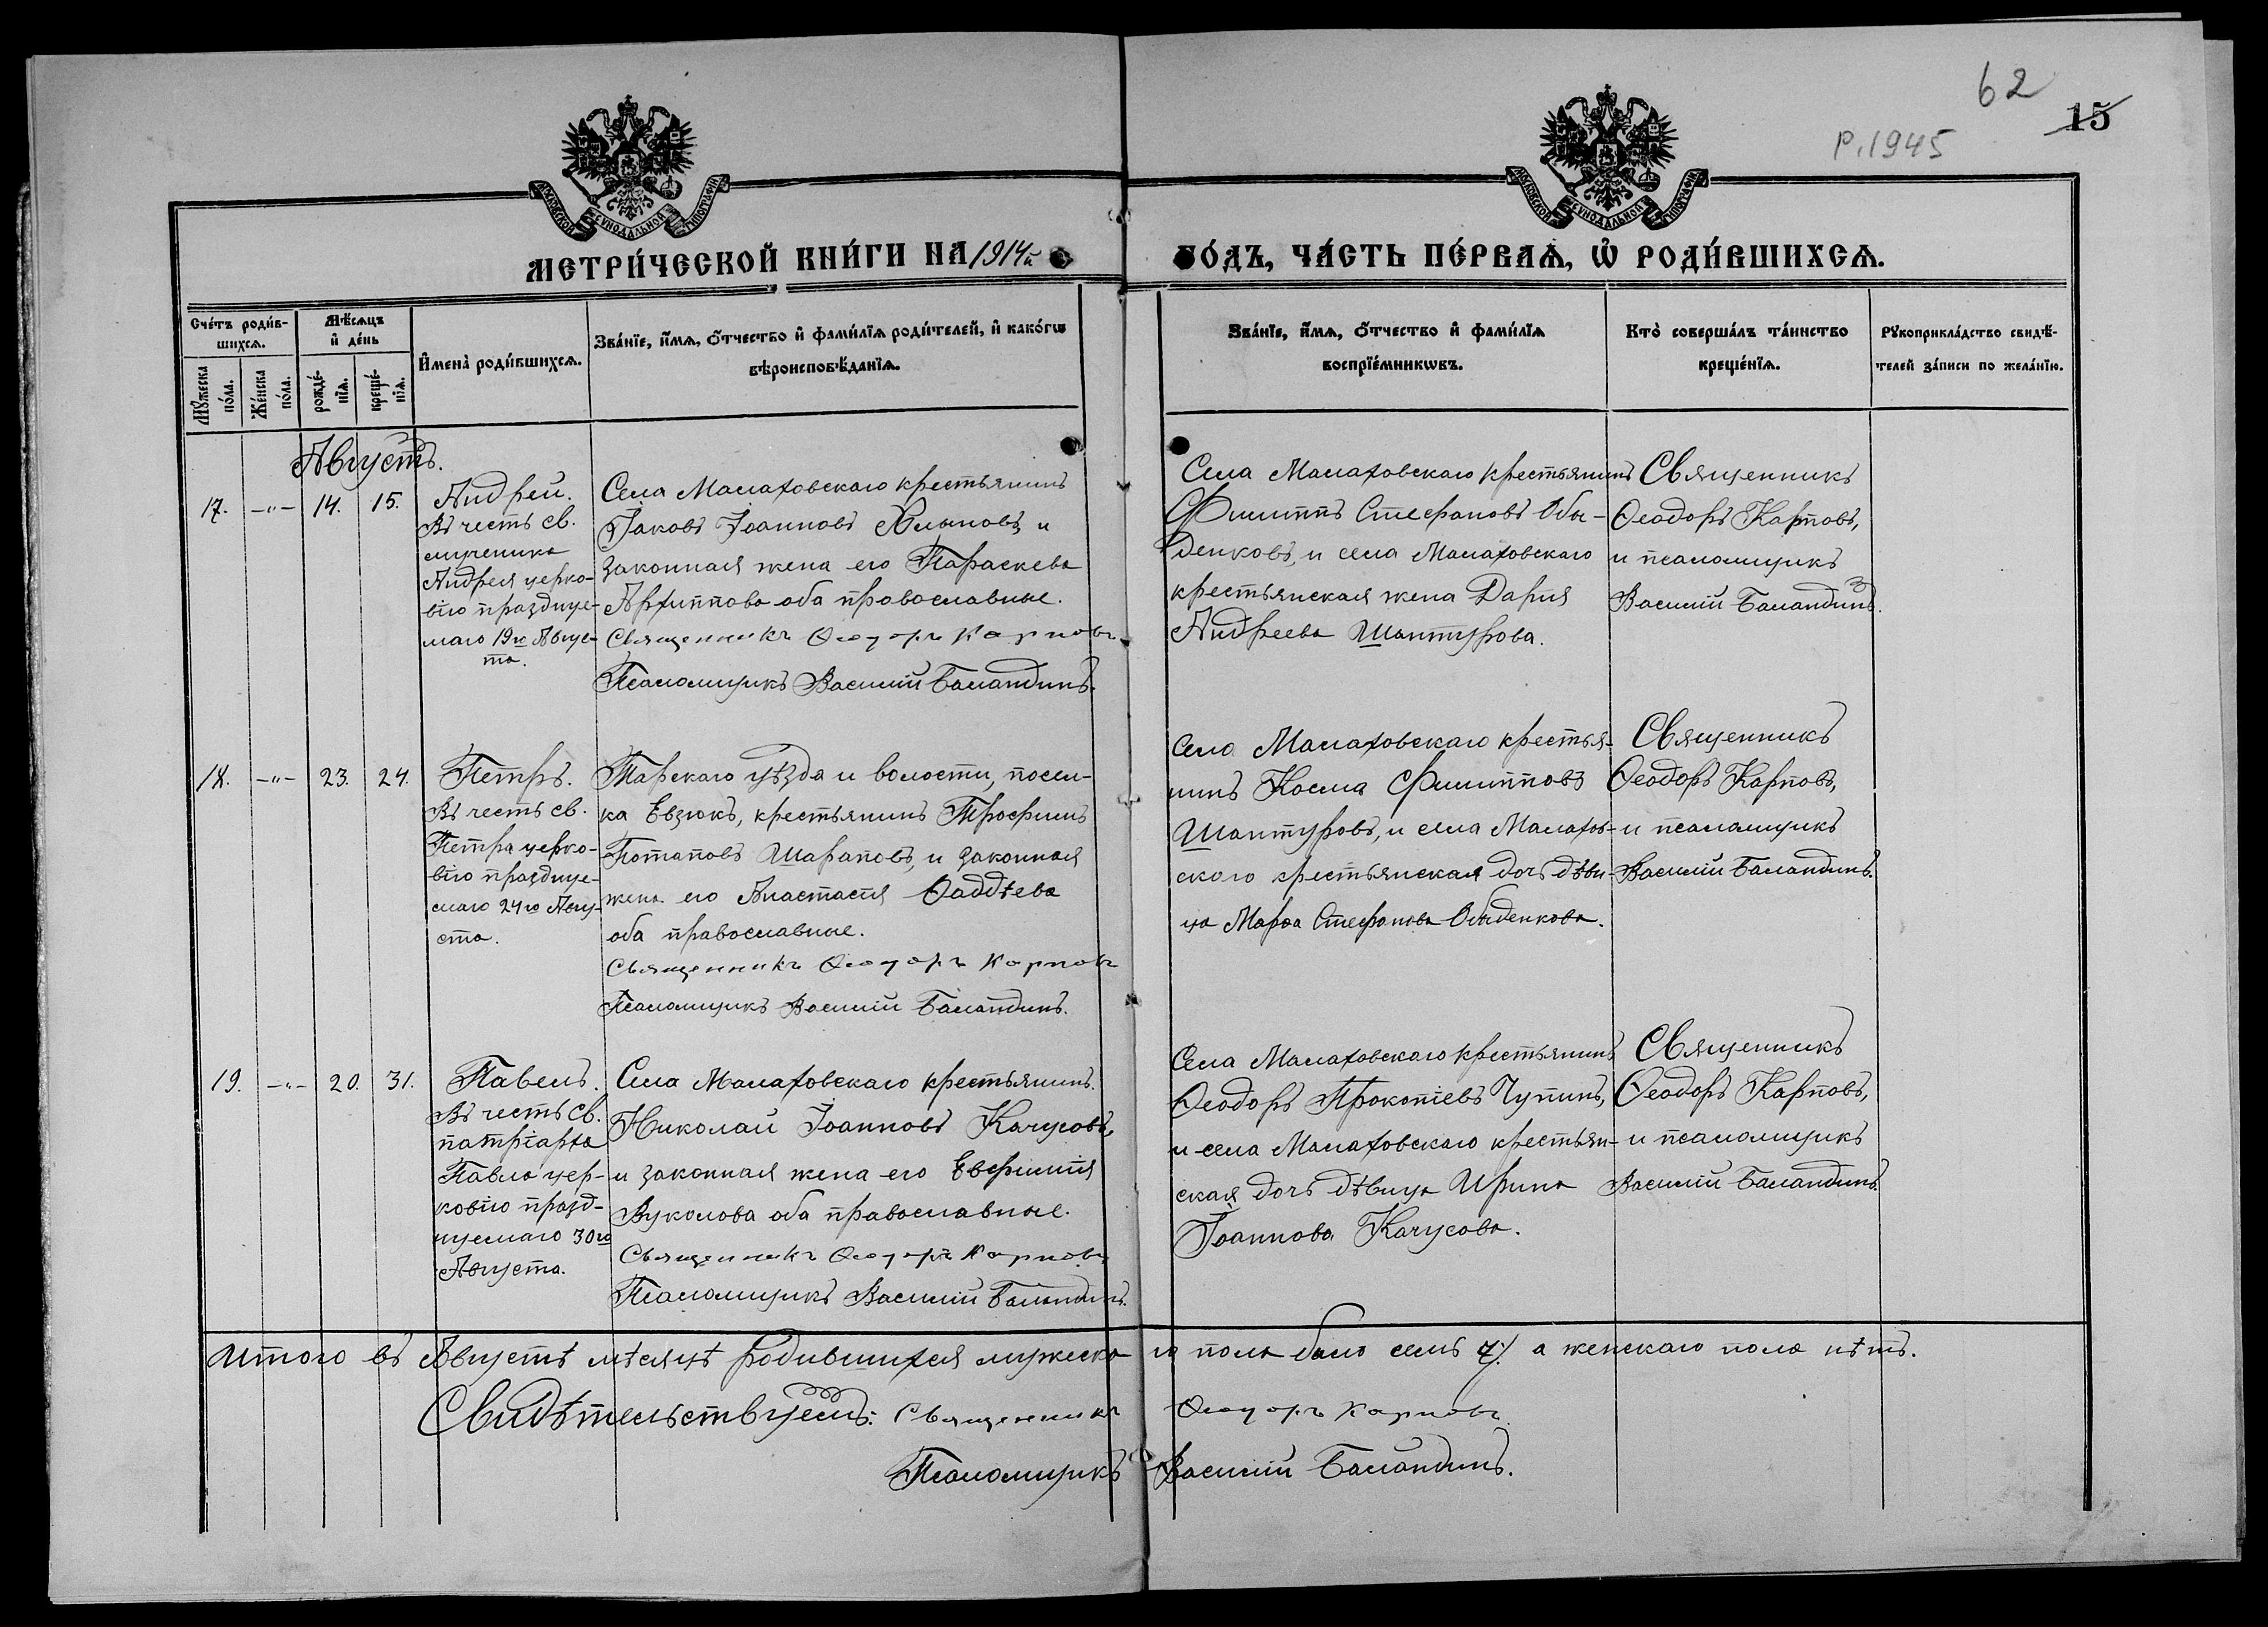 62
15
Р. 1945
МОСКОВСКОЙ СѴНОДАЛЬНОЙ ТИПОГРАФІИ
МОСКОВСКОЙ СѴНОДАЛЬНОЙ ТИПОГРАФІИ
МЕТРИ́ЧЕСКОЙ КНИ́ГИ НА 1914й ГО́ДЪ, ЧА́СТЬ ПЕ́РВАѦ, Ѽ РОДИ́ВШИХСѦ.
Сче́тъ роди́в-
шихсѧ.
Мѣ́сѧцъ
и҆ де́нь
Мꙋ́жеска
по́ла.
Же́нска
по́ла.
рожде́-
нїѧ.
креще́-
нїѧ.
И҆мена̀ роди́вшихсѧ.
Зва́нїе, и҆́мѧ, ѻ҆́тчество и҆ фами́лїѧ роди́телей, и҆ како́гѡ
вѣроисповѣ́данїѧ.
Зва́нїе, и҆́мѧ, ѻ҆́тчество и҆ фами́лїѧ
воспрїе́мникѡвъ.
Кто̀ соверша́лъ та́инство
креще́нїѧ.
Рꙋкоприкла́дство свидѣ́-
телей за́писи по жела́нїю.
Августъ.
17. -"- 14. 15.
Андрей.
Въ честь св.
мученика
Андрея церко-
вію праздңуе-
маго 19го Авгус-
та.
Села Малаховскаго крестьянинъ
Іаковъ Іоанновъ и
законная жена его Параскева
Архиппова оба православные.
Священникъ Ѳеодоръ Карповъ
Псаломщикъ Василій Баландинъ.
Села Малаховскаго крестьянинъ
Филиппъ Стефановъ Обы-
денковъ, и села Малаховскаго
крестьянская жена Дарія
Андреева Шантурова.
Священникъ
Ѳеодоръ Карповъ,
и псаломщикъ
Василій Баландинъ.
18. -"- 23. 24.
Петръ.
Въ честь св.
Петра церко-
вію праздңуе-
маго 24го Авгу-
ста.
Тарскаго уѣзда и волости, посел-
ка Евзюкъ, крестьянинъ Трофимъ
Потаповъ Шараповъ, и законная
жена его Анастасія Ѳаддѣева
оба православные.
Священникъ Ѳеодоръ Карповъ
Псаломщикъ Василій Баландинъ.
Села Малаховскаго крестья-
нинъ Косма Филипповъ
Шантуровъ, и села Малахов-
скаго крестьянская дочь дѣви-
ца Марѳа Стефанова Обыденкова.
Священникъ
Ѳеодоръ Карповъ,
и псаломщикъ
Василій Баландинъ.
19. -"- 20. 31.
Павелъ.
Въ честь св.
патріарха
Павла цер-
ковію празд-
нуемаго 30го
Августа.
Села Малаховскаго крестьянинъ.
Николай Іоанновъ Качусовъ,
и законная жена его Евфимія
Вуколова оба православные.
Священникъ Ѳеодоръ Карповъ
Псаломщикъ Василій Баландинъ.
Села Малаховскаго крестьянинъ
Ѳеодоръ Прокопіевъ Чупинъ,
и села Малаховскаго крестьян-
ская дочь дѣвица Ирина
Іоаннова Качусова.
Священникъ
Ѳеодоръ Карповъ,
и псаломщикъ
Василій Баландинъ.
Итого въ Августѣ мѣсяцѣ родившихся мужеска го пола было семь 7/. а женскаго пола нѣтъ.
Свидѣтельствуемъ: Священникъ Ѳеодоръ Карповъ.
Псаломщикъ Василій Баландинъ.